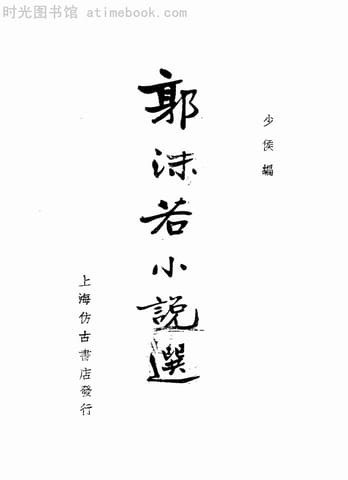 时光图书馆 - atimebook.com
少侯編
郭沫若小說選
上海仿古書店發行